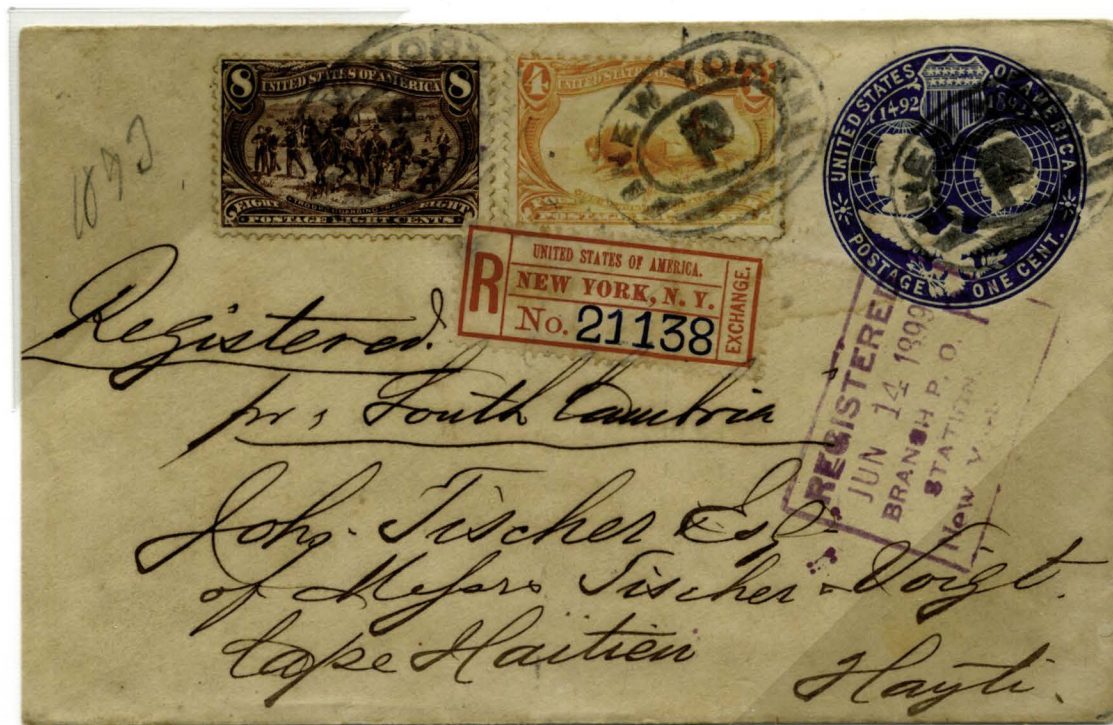 8 UNITED STATES OF AMERICA 8
EIGHT EIGHT
POSTAGE EIGHT CENTS
4
POSTAGE
NEW YORK
UNITED STATES OF AMERICA
1492
POSTAGE ONE CENT.
R
UNITED STATES OF AMERICA.
NEW YORK, N. Y.
No. 21138
EXCHANGE.
REGISTERED
JUN 14 1899
BRANCH P. O.
STATION
New
Registered.
pr, South Cambria
Joh. Tischer Esq.
of Messrs Tischer & Voigt.
Cape Haitien
Hayti.